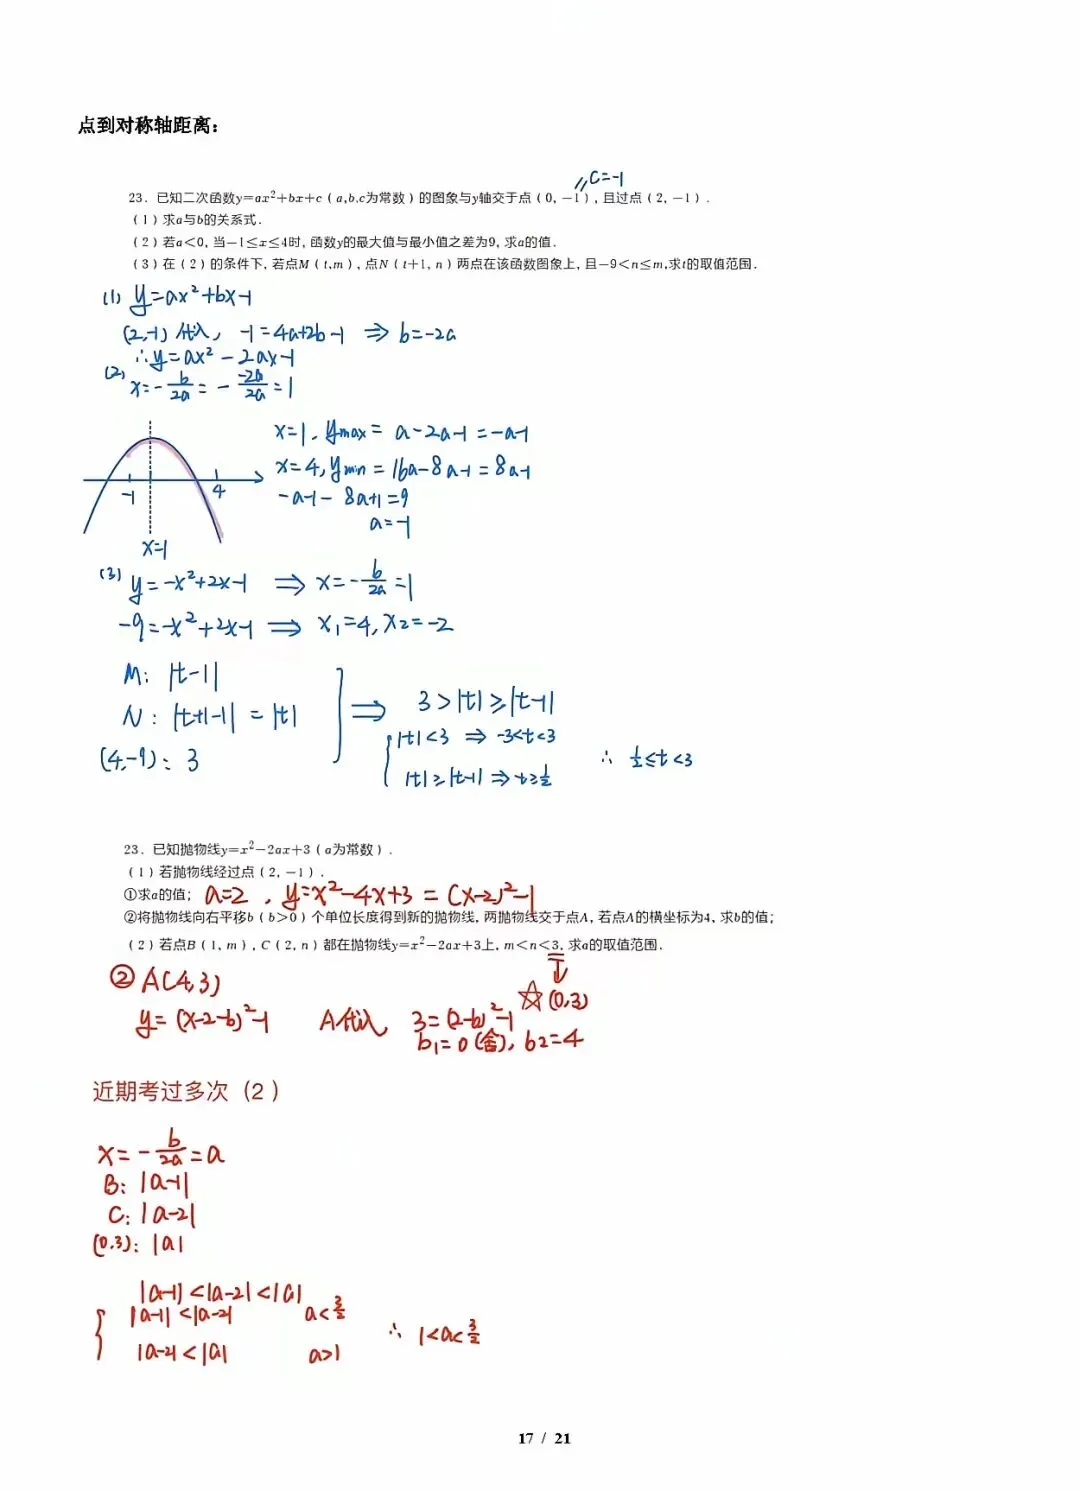 点到对称轴距离：
C=-1
23．已知二次函数y=ax²+bx+c（a,b,c为常数）的图象与y轴交于点（0，-1），且过点（2，-1）.
（1）求a与b的关系式.
（2）若a<0，当-1≤x≤4时，函数y的最大值与最小值之差为9，求a的值.
（3）在（2）的条件下，若点M（t,m），点N（t+1，n）两点在该函数图象上，且-9<n≤m,求t的取值范围.
(1) y=ax²+bx-1
(2,-1)代入， -1=4a+2b-1 ⇒ b=-2a
∴y=ax²-2ax-1
(2) x=-b/2a=-(-2a)/2a=1
x=1，ymax=a-2a-1=-a-1
x=4，ymin=16a-8a-1=8a-1
-a-1-8a+1=9
a=-1
-1 4
x=1
(3) y=-x²+2x-1 ⇒ x=-b/2a=1
-9=-x²+2x-1 ⇒ x₁=4, x₂=-2
M: |t-1|
N: |t+1-1|=|t| ⇒ 3>|t|≥|t-1|
(4,-9): 3
|t|<3 ⇒ -3<t<3
|t|≥|t-1| ⇒ t≥1/2 ∴ 1/2≤t<3
23．已知抛物线y=x²-2ax+3（a为常数）.
（1）若抛物线经过点（2，-1）.
①求a的值； a=2，y=x²-4x+3=(x-2)²-1
②将抛物线向右平移b（b>0）个单位长度得到新的抛物线，两抛物线交于点A，若点A的横坐标为4，求b的值；
（2）若点B（1，m），C（2，n）都在抛物线y=x²-2ax+3上，m<n<3，求a的取值范围.
☆(0,3)
② A(4,3)
y=(x-2-b)²-1 A代入 3=(2-b)²-1
b₁=0(舍)，b2=4
近期考过多次（2）
x=-b/2a=a
B: |a-1|
C: |a-2|
(0.3): |a|
|a-1|<|a-2|<|a|
|a-1|<|a-2| a<3/2
|a-2|<|a| a>1 ∴ 1<a<3/2
17 / 21